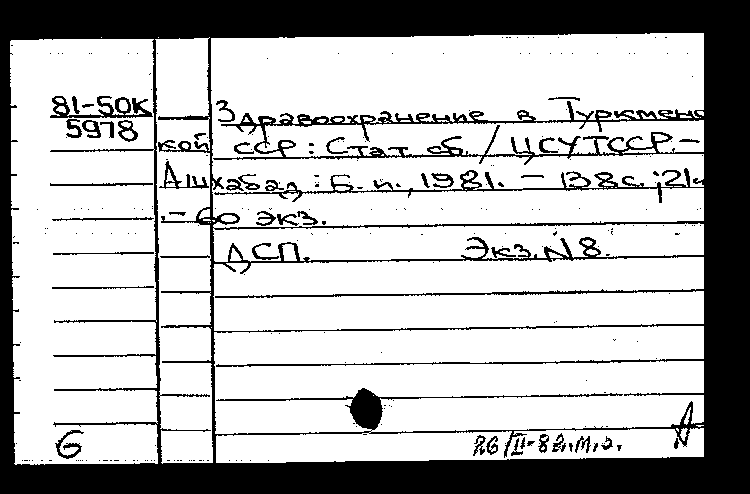 81-50к
5978
Здравоохранение в Туркменс
кой ССР : Стат. сб. / ЦСУ ТССР. –
Ашхабад : Б. и., 1981. – 138 с. ; 21
. – 60 экз.
ДСП. Экз. N 8.
G
26/II-82 г. м. г.
А